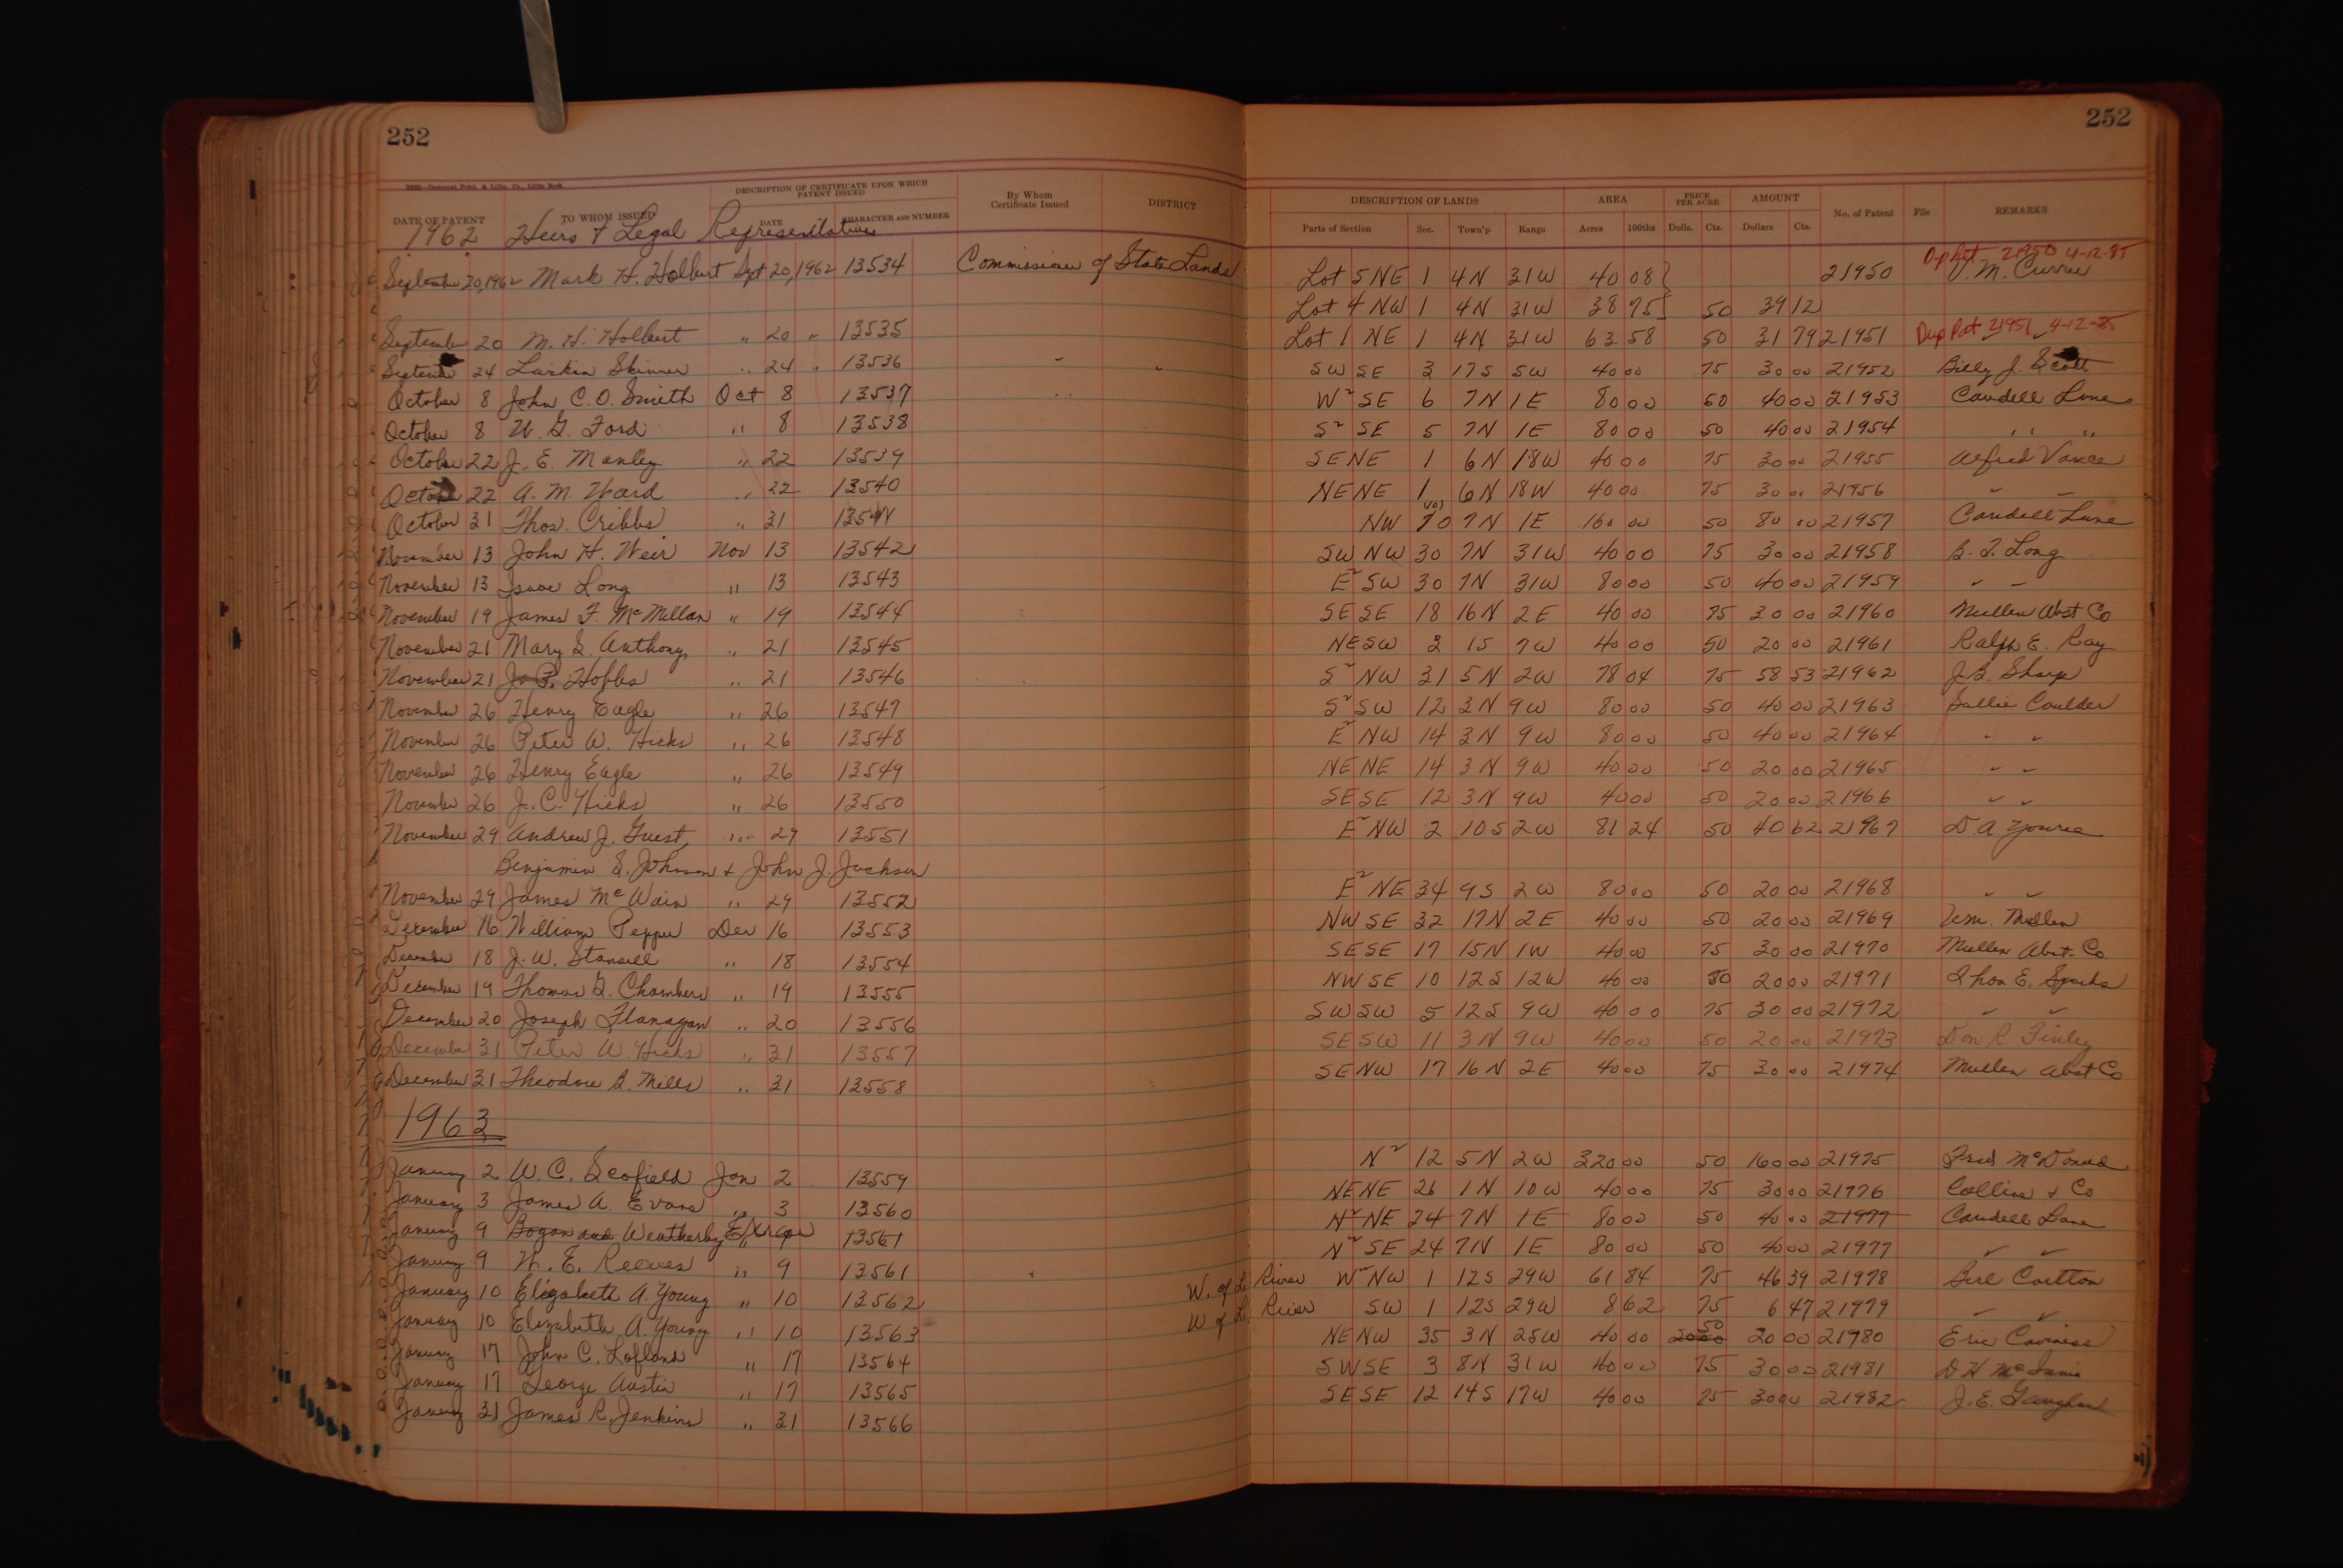 252 252
DATE OF PATENT TO WHOM ISSUED DESCRIPTION OF CERTIFICATE UPON WHICH PATENT ISSUED DATE CHARACTER AND NUMBER By Whom Certificate Issued DISTRICT DESCRIPTION OF LANDS Parts of Section Sec. Town'p Range AREA Acres 100ths PRICE PER ACRE Dolls. Cts. AMOUNT Dollars Cts. No. of Patent File REMARKS
1962 Heirs & Legal Representatives
Dup Pat 21950 4-12-85
September 20, 1962 Mark H. Holbert Sept 20, 1962 13534 Commissioner of State Lands Lot 5 NE 1 4N 31W 40 08 21950 J. M. Currie
Lot 4 NW 1 4N 31W 38 75 50 39 12
September 20 M. H. Holbert " 20 " 13535 Lot 1 NE 1 4N 31W 63 58 50 31 79 21951 Dup Pat 21951 4-12-85
September 24 Larkin Skinner " 24 " 13536 SW SE 3 17S 5W 40 00 75 30 00 21952 Billy J. Scott
October 8 John C. O. Smith Oct 8 13537 W² SE 6 7N 1E 80 00 50 40 00 21953 Caudell Lane
October 8 W. G. Ford " 8 13538 S² SE 5 7N 1E 80 00 50 40 00 21954 " "
October 22 J. E. Manley " 22 13539 SENE 1 6N 18W 40 00 75 30 00 21955 Alfred Vance
October 22 A. M. Ward " 22 13540 NENE 1 6N 18W 40 00 75 30 00 21956 " "
October 31 Thos. Cribbs " 31 13541 NW 10 7N 1E 160 00 50 80 00 21957 Caudell Lane
November 13 John H. Weir Nov 13 13542 SW NW 30 7N 31W 40 00 75 30 00 21958 B. T. Long
November 13 Isaac Long " 13 13543 E² SW 30 7N 31W 80 00 50 40 00 21959 " "
November 19 James F. McMillan " 19 13544 SESE 18 16N 2E 40 00 75 30 00 21960 Mullen Abst Co
November 21 Mary S. Anthony " 21 13545 NESW 3 1S 7W 40 00 50 20 00 21961 Ralph E. Ray
November 21 J. P. Hobbs " 21 13546 S² NW 31 5N 2W 78 04 75 58 53 21962 J. B. Sharp
November 26 Henry Eagle " 26 13547 S² SW 12 3N 9W 80 00 50 40 00 21963 Sallie Caulder
November 26 Peter W. Hicks " 26 13548 E² NW 14 3N 9W 80 00 50 40 00 21964 " "
November 26 Henry Eagle " 26 13549 NENE 14 3N 9W 40 00 50 20 00 21965 " "
November 26 J. C. Hicks " 26 13550 SESE 12 3N 9W 40 00 50 20 00 21966 " "
November 29 Andrew J. Guest, " 29 13551 E² NW 2 10S 2W 81 24 50 40 62 21967 D. A. Youree
Benjamin S. Johnson & John J. Jackson
November 29 James McWain " 29 13552 E² NE 34 9S 2W 80 00 50 20 00 21968 " "
December 16 William Pepper Dec 16 13553 NWSE 32 17N 2E 40 00 50 20 00 21969 Wm. Mullen
December 18 J. W. Stansell " 18 13554 SESE 17 15N 1W 40 00 75 30 00 21970 Mullen Abst. Co
December 19 Thomas G. Chambers " 19 13555 NWSE 10 12S 12W 40 00 50 20 00 21971 Thos E. Sparks
December 20 Joseph Flanagan " 20 13556 SWSW 5 12S 9W 40 00 75 30 00 21972 " "
December 31 Peter W. Hicks " 31 13557 SESW 11 3N 9W 40 00 50 20 00 21973 Don R Finley
December 31 Theodore B. Mills " 31 13558 SENW 17 16N 2E 40 00 75 30 00 21974 Mullen Abst Co
1963
January 2 W. C. Scofield Jan 2 13559 N² 12 5N 2W 320 00 50 160 00 21975 Fred McDonald
January 3 James A. Evans " 3 13560 NENE 26 1N 10W 40 00 75 30 00 21976 Collins & Co
January 9 Bogan and Weatherby Error 9 13561 N² NE 24 7N 1E 80 00 50 40 00 21977 Caudell Lane
January 9 W. E. Reeves " 9 13561 N² SE 24 7N 1E 80 00 50 40 00 21977 " "
January 10 Elizabeth A. Young " 10 13562 W. of L. River W² NW 1 12S 29W 61 84 75 46 39 21978 Berl Cortton
January 10 Elizabeth A. Young " 10 13563 W of L. River SW 1 12S 29W 8 62 75 6 47 21979 " "
January 17 John C. Lofland " 17 13564 NENW 35 3N 25W 40 00 50 20 00 21980 Eric Caviness
January 17 George Austin " 17 13565 SWSE 3 8N 31W 40 00 75 30 00 21981 D H McInnis
January 31 James R. Jenkins " 31 13566 SESE 12 14S 17W 40 00 75 30 00 21982 J. E. Gaughan